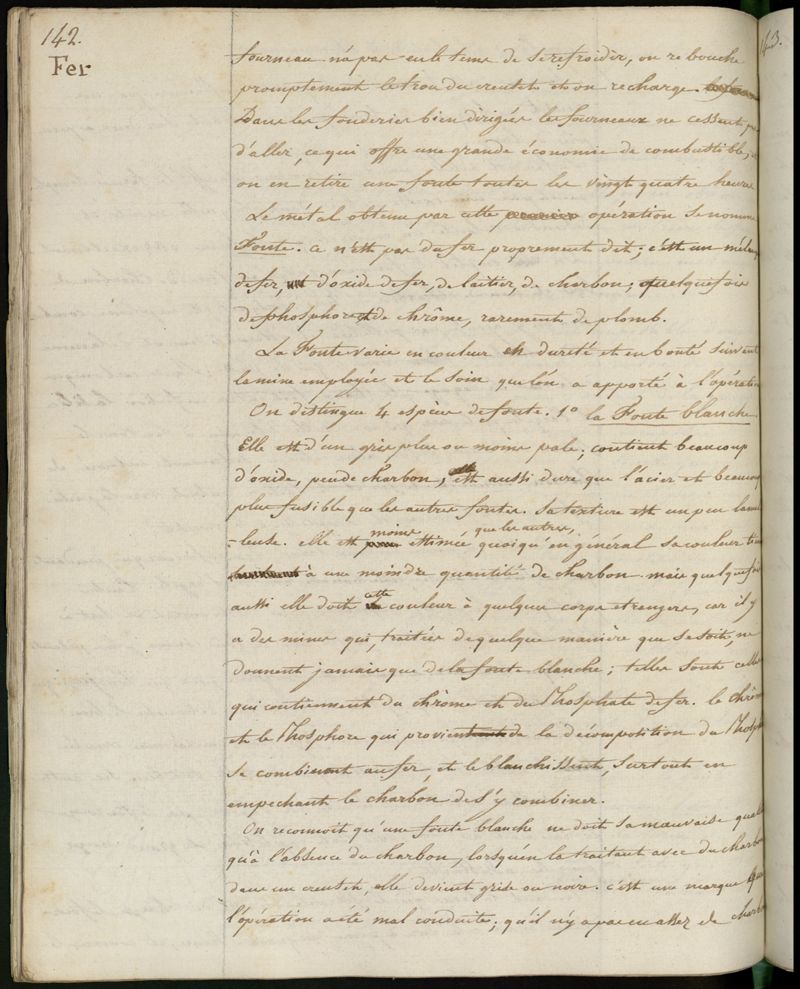 142.
Fer
fourneau n'a pas eu le tems de se refroidir, on rebouche
promptement le trou du creuset et on recharge.
Dans les fonderies bien dirigées les fourneaux ne cessent
d'aller, ce qui offre une grande économie de combustible,
on en retire une fonte toutes les vingt quatre heures
Le métal obtenu par cette premiere opération se nomme
Fonte. ce n'est pas du fer proprement dit; c'est un mélan
de fer, d'oxide de fer, de laitier, de charbon; quelquefois
de phosphore et de chrôme, rarement de plomb.
La Fonte varie en couleur en dureté et en bonté suivant
la mine employée et le soin que l'on a apporté à l'opérati
On distingue 4 espèces de fonte. 1º la Fonte blanche
Elle est d'un gris plus ou moins pale; contient beaucoup
d'oxide, peu de charbon; est aussi dure que l'acier et beaucoup
plus fusible que les autres fontes. sa texture est un peu lamel
moins que les autres,
-leuse. elle est estimée quoiqu'en général sa couleur
à une moindre quantité de charbon. mais quelquefois
cette
aussi elle doit couleur à quelques corps etrangers, car il y
a des mines qui, traitées de quelque manière que ce soit, ne
donnent jamais que de la fonte blanche; telles sont celles
qui contiennent du chrôme et du Phosphate de fer. le chrôm
et le Phosphore qui provient de la décomposition du Phosph
se combinent au fer, et le blanchissent, surtout en
empechant le charbon de s'y combiner.
On reconnoit qu'une fonte blanche ne doit sa mauvaise quali
qu'à l'absence du charbon, lorsqu'en la traitant avec du charbon
dans un creuset, elle devient grise ou noire. c'est une marque que
l'opération a été mal conduite; qu'il n'y a pas eu assez de charbon
143.